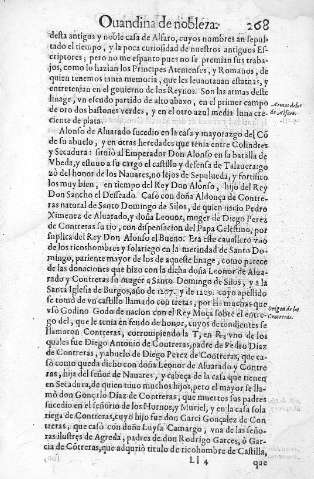 Ouandina de nobleza. 268
desta antigua y noble casa de Alfaro, cuyos nombres an sepul
tado el tiempo, y la poca curiosidad de nuestros antiguos Es-
criptores; pero no me espanto pues no se premian sus traba-
jos, como lo hazian los Principes Atenienses, y Romanos, de
quien tenemos tanta memoria, que les leuantauan estatuas, y
entretenian en el gouierno de los Reynos. Son las armas deste
linage, vn escudo partido de alto abaxo, en el primer campo
de oro dos bastones verdes, y en el otro azul media luna cre-
ciente de plata.
Armas deste
de Alfaro.
Alonso de Aluarado sucedio en la casa y mayorazgo del Cõ
de su abuelo, y en otras heredades que tenia entre Colindres
y Secadura: siruio al Emperador Don Alonso en la batalla de
Vbeda, y estuuo a su cargo el castillo y defensa de
zo del honor de los Nauares, no lejos de Sepulueda, y fortifico
los muy bien, en tiempo del Rey Don Alonso, hijo del Rey
Don Sancho el Desseado. Casò con doña Aldonça de Contre-
ras natural de Santo Domingo de Silos, de quien nacio Pedro
Ximenez de Aluarado, y doña Leonor, muger de Diego Perez
de Contreras su tio, con dispensacion del Papa Celestino, por
suplica del Rey Don Alonso el Bueno. Era este cauallero vno
de los ricoshombres y solariego en la merindad de Santo Do-
mingo, pariente mayor de los de aqueste linage, como parece
de las donaciones que hizo con la dicha doña Leonor de Alua-
rado y Contreras su muger a Santo Domingo de Silos, y a la
Santa Iglesia de Burgos, año de y de cuyo apellido
se tomò de vn castillo llamado contreras, por
uso Godino Godo de nacion con el Rey Moro sobre el
go del, que le tenia en feudo de honor, cuyos decendientes se
llamaron Contreras, corrompiendo la T, en R, vno de los
Origen de los
Contreras.
quales fue Diego Antonio de Contreras, padre de Pedro Diaz
de Contreras, y abuelo de Diego Perez de Contreras, que ca-
sò como queda dicho con doña Leonor de Aluarado y Contre
ras, hija del señor de Nauares, y cabeça de la casa que tienen
en Secadura, de quien tuuo muchos hijos, pero el mayor se lla-
mò don Gonçalo Diaz de Contreras, que muertos sus padres
sucedio en el señorio de los Hornos, y Muriel, y en la casa sola
riega de Contreras, cuyo hijo fue don Garci Gonçalez de Con
treras, que casò con doña Luysa Camargo, vna de las seño-
ras ilustres de Agreda, padres de don Rodrigo Garces, ò Gar-
cia de Cõtreras, que adquirio titulo de ricohombre de Castilla,
Ll 4 que